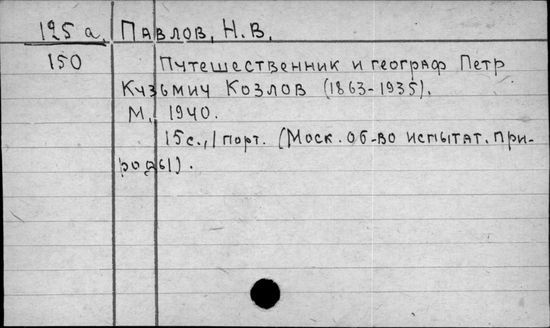 125 а. Павлов, Н.В.
150 Путешественник и географ Петр
Кузьмич Козлов (1863-1935).
М., 1940.
15с., 1 порт. (Моск. об-во испытат. при-
роды).